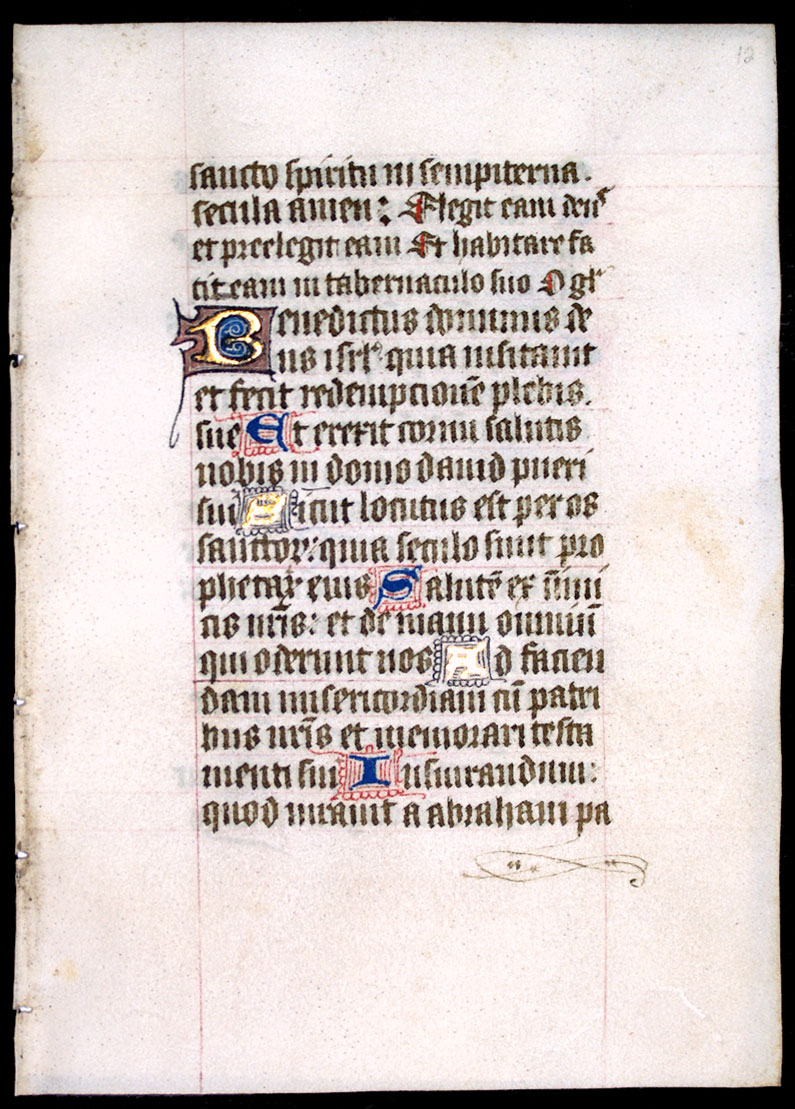 12
sancto spiritu in sempiterna.
secula amen: Elegit eam deus
et preelegit eam Et habitare fa
cit eam in tabernaculo suo O gl'
Benedictus dominus de
us isrl' quia visitavit
et fecit redempcionē plebis.
sue Et erexit cornu salutis
nobis in domo david pueri
sui Sicut locutus est per os
sanctoꝝ: quia seculo sunt pro
phetaꝝ eius Salutē ex inimi
cis nr̄is: et de manu omniū
qui oderunt nos Ad facien
dam misericordiam cū patri
bus nr̄is et memorari testa
menti sui Iusiurandum:
quod iuravit a abraham pa